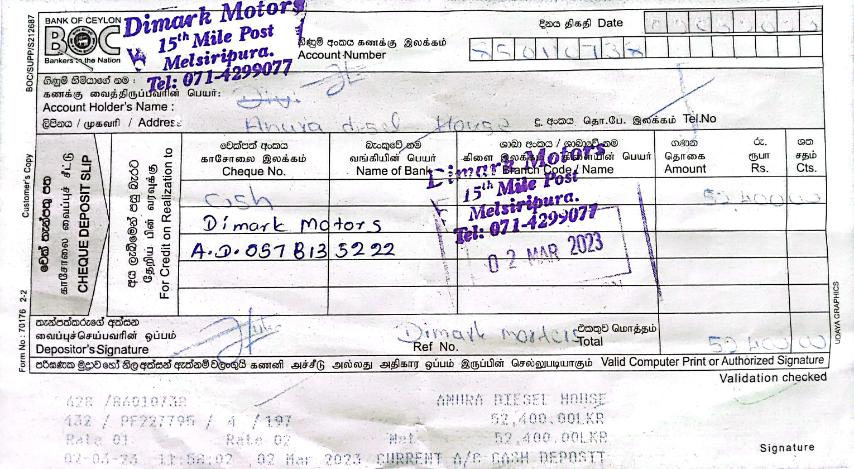 BOC/SUPP/S212687
BANK OF CEYLON
BOC
Bankers to the Nation
Dimark Motors
15th Mile Post
Melsiripura.
Tel: 071-4299077
දිනය திகதி Date
ගිණුම් අංකය கணக்கு இலக்கம்
Account Number
ගිණුම් හිමියාගේ නම :
கணக்கு வைத்திருப்பவரின் பெயர்:
Account Holder's Name :
Anura diesel House
ලිපිනය / முகவரி / Address
දු. අංකය தொ.பே. இலக்கம் Tel.No
Customer's Copy
චෙක් තැන්පතු පත
காசோலை வைப்புச் சீட்டு
CHEQUE DEPOSIT SLIP
අය ලැබීමෙන් පසු බැරට
தேறிய பின் வரவுக்கு
For Credit on Realization to
චෙක්පත් අංකය
காசோலை இலக்கம்
Cheque No.
බැංකුවේ නම
வங்கியின் பெயர்
Name of Bank
ශාඛා අංකය / ශාඛාවේ නම
Branch Code / Name
ගණන
தொகை
Amount
රු.
ரூபா
Rs.
ශත
சதம்
Cts.
Cash
52,400 00
Dimark Motors
A.D. 057 B13 5222
Dimark Motors
15th Mile Post
Melsiripura.
Tel: 071-4299077
02 MAR 2023
තැන්පත්කරුගේ අත්සන
வைப்புச்செய்பவரின் ஒப்பம்
Depositor's Signature
Ref No.
එකතුව மொத்தம்
Total
52,400 00
Form No : 70176 2-2
UDAYA GRAPHICS
Valid Computer Print or Authorized Signature
Validation checked
428 /86010738
ANURA DIESEL HOUSE
432 / PF227795 / 4 /197
52,400.00LKR
Rate 01 Rate 02 Net 52,400.00LKR
02-03-23 11:58:02 02 Mar 2023 CURRENT A/C CASH DEPOSIT
Signature